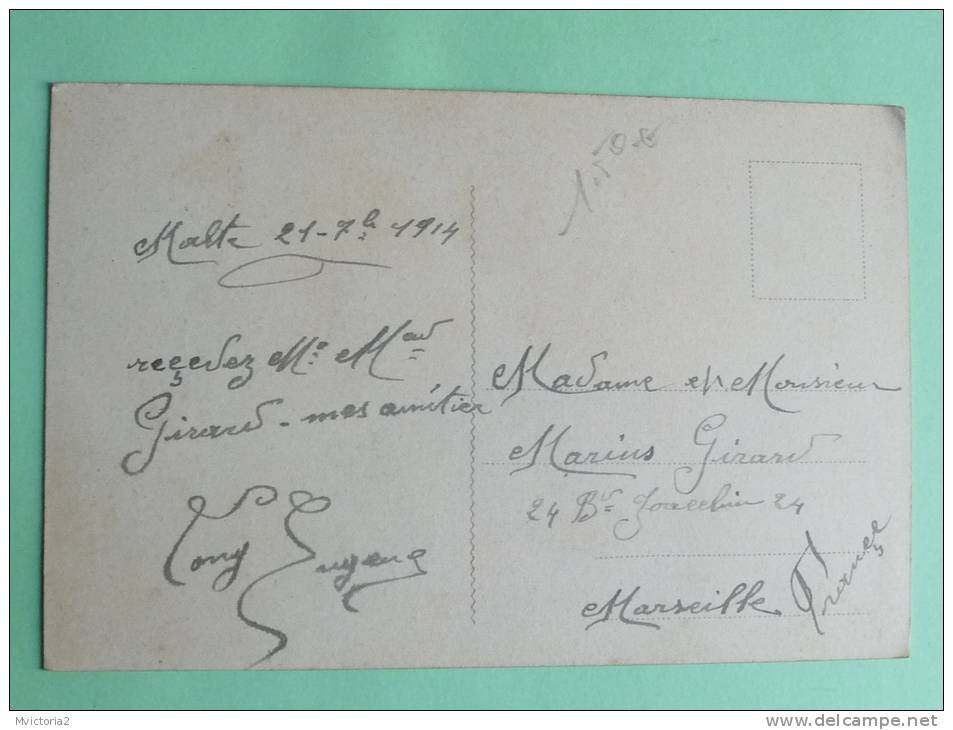 Malte 21-7bre 1914
reçevez Mr Mad
Girard - mes amitier
Tony Eugene
1.50 €
Madame et Monsieur
Marius Girard
24 Bd Joacchin 24
Marseille France
Mvictoria2
www.delcampe.net